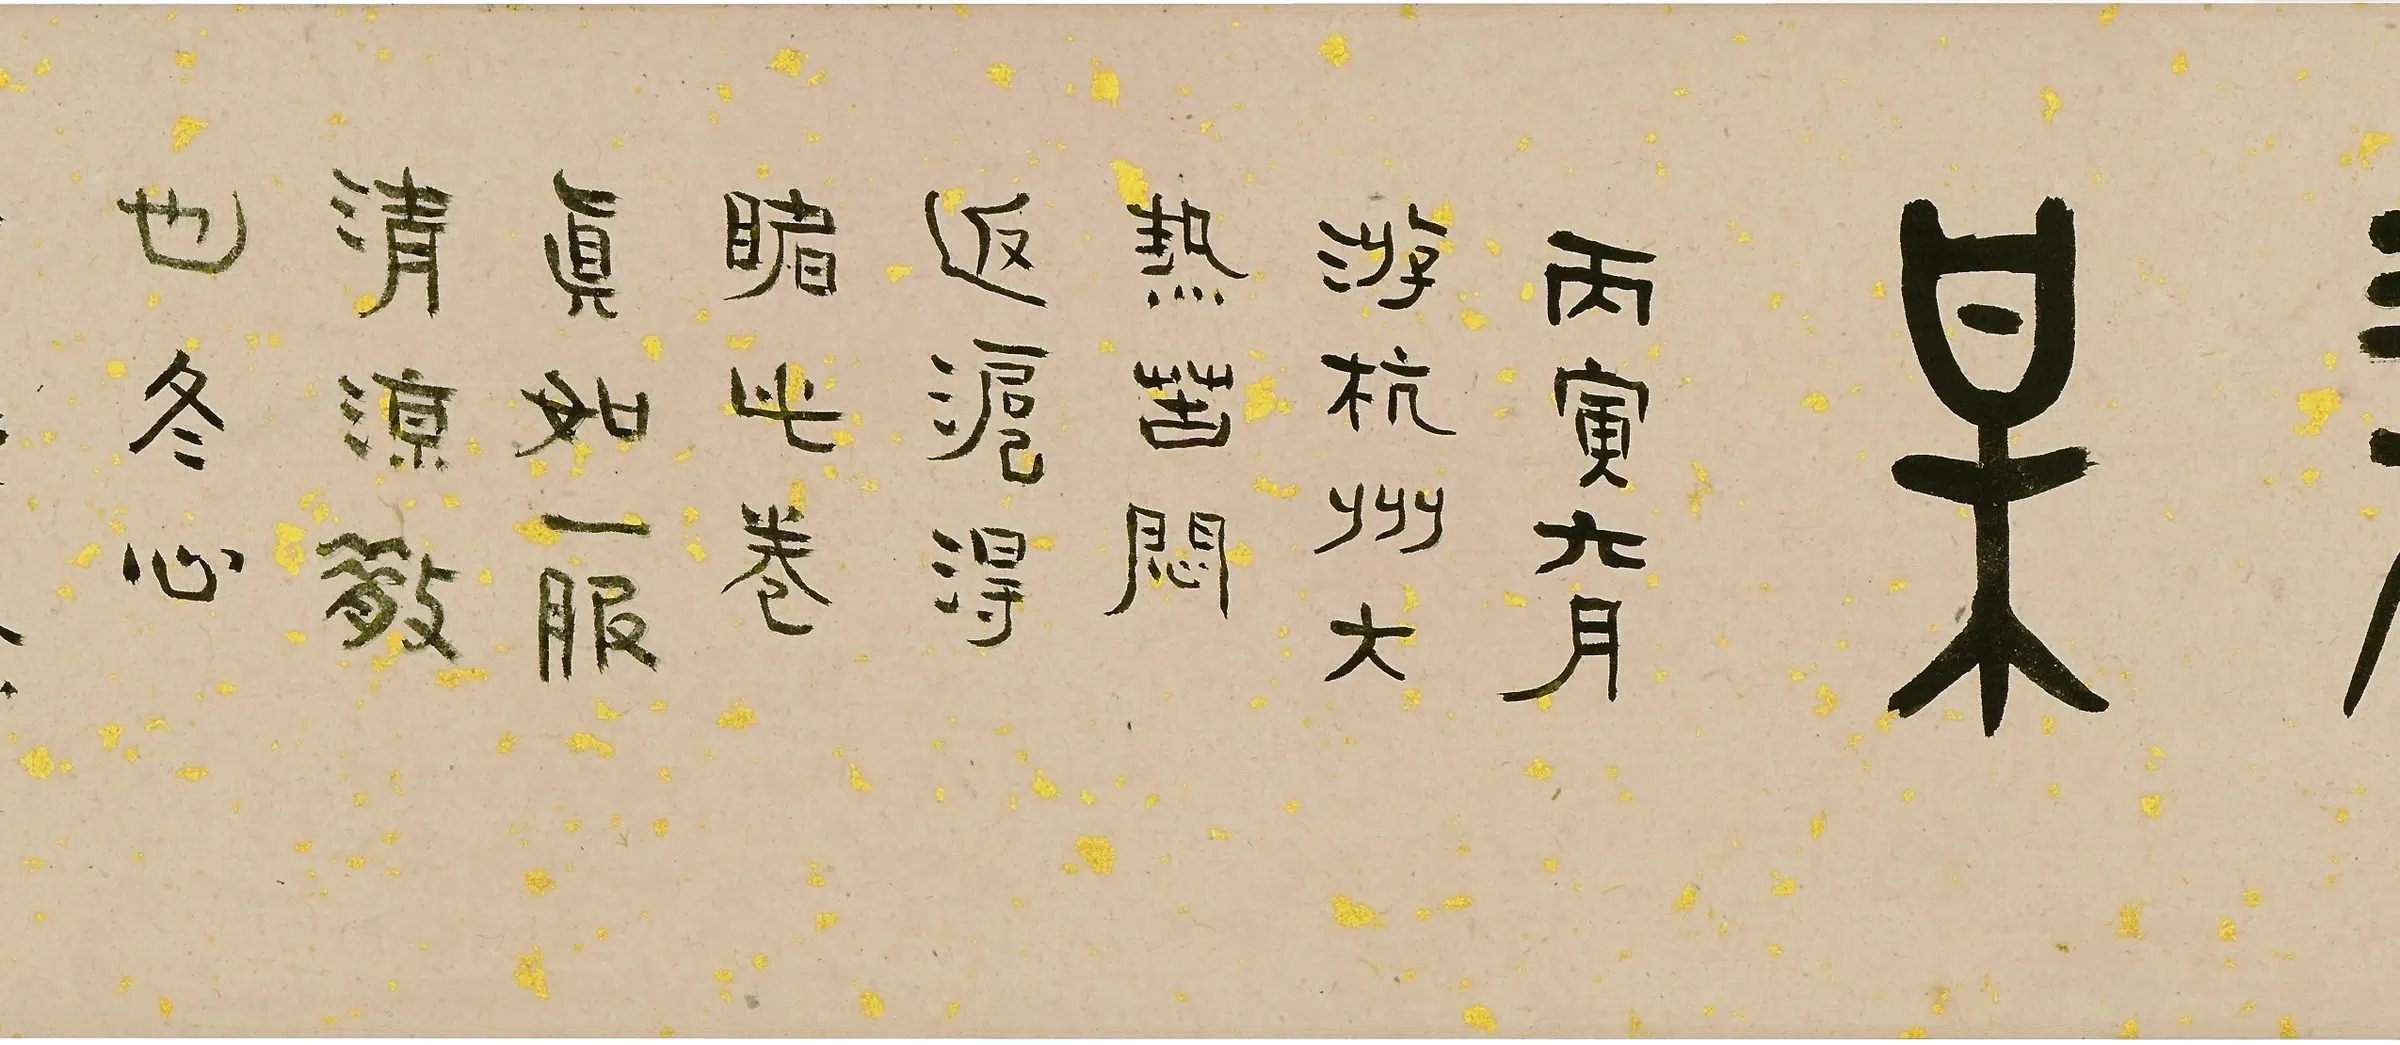 某
丙寅六月
游杭州大
熱苦悶
返滬得
睹此卷
眞如一服
清涼散
也冬心